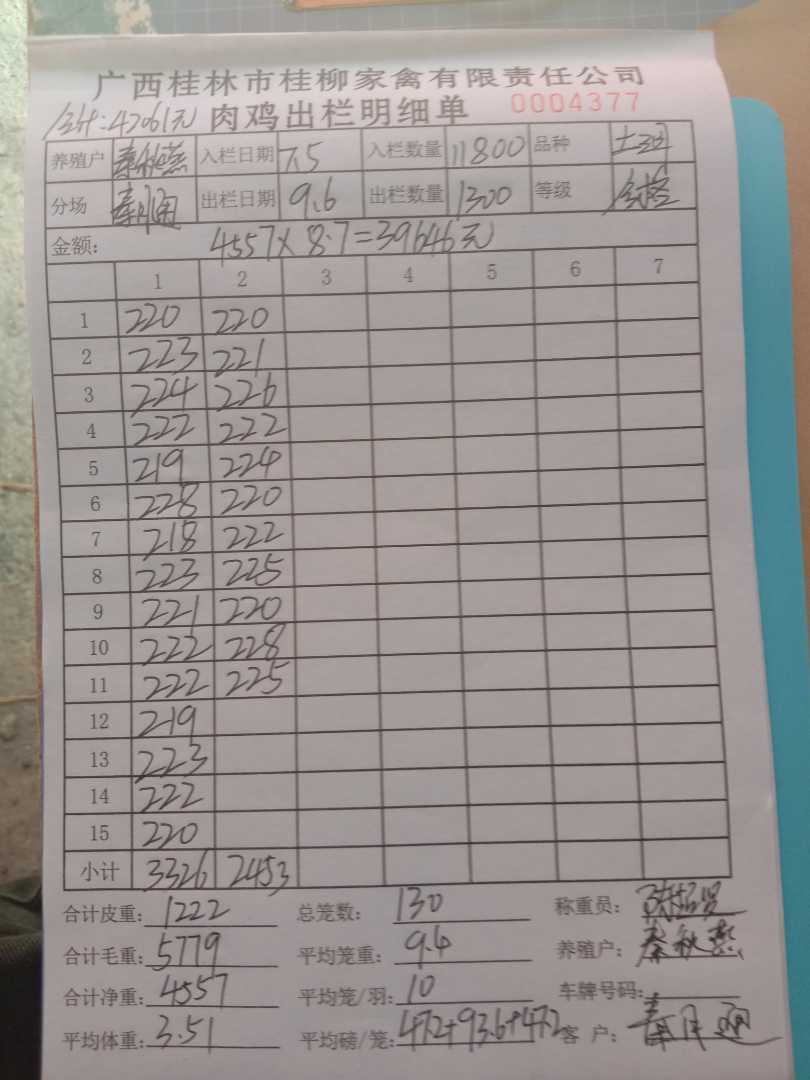 广西桂林市桂柳家禽有限责任公司
合计:47061元 肉鸡出栏明细单 0004377
养殖户 秦秋燕 入栏日期 7.5 入栏数量 11800 品种 土
分场 秦月通 出栏日期 9.6 出栏数量 1300 等级
金额: 4557×8.7=39646元
1 2 3 4 5 6 7
1 220 220
2 223 221
3 224 226
4 222 222
5 219 224
6 228 220
7 218 222
8 223 225
9 221 220
10 222 228
11 222 225
12 219
13 223
14 222
15 220
小计 3326 2453
合计皮重: 1222 总笼数: 130 称重员:
合计毛重: 5779 平均笼重: 9.4 养殖户: 秦秋燕
合计净重: 4557 平均笼/羽: 10 车牌号码:
平均体重: 3.51 平均磅/笼: 472+93.6+472 客 户: 秦月通